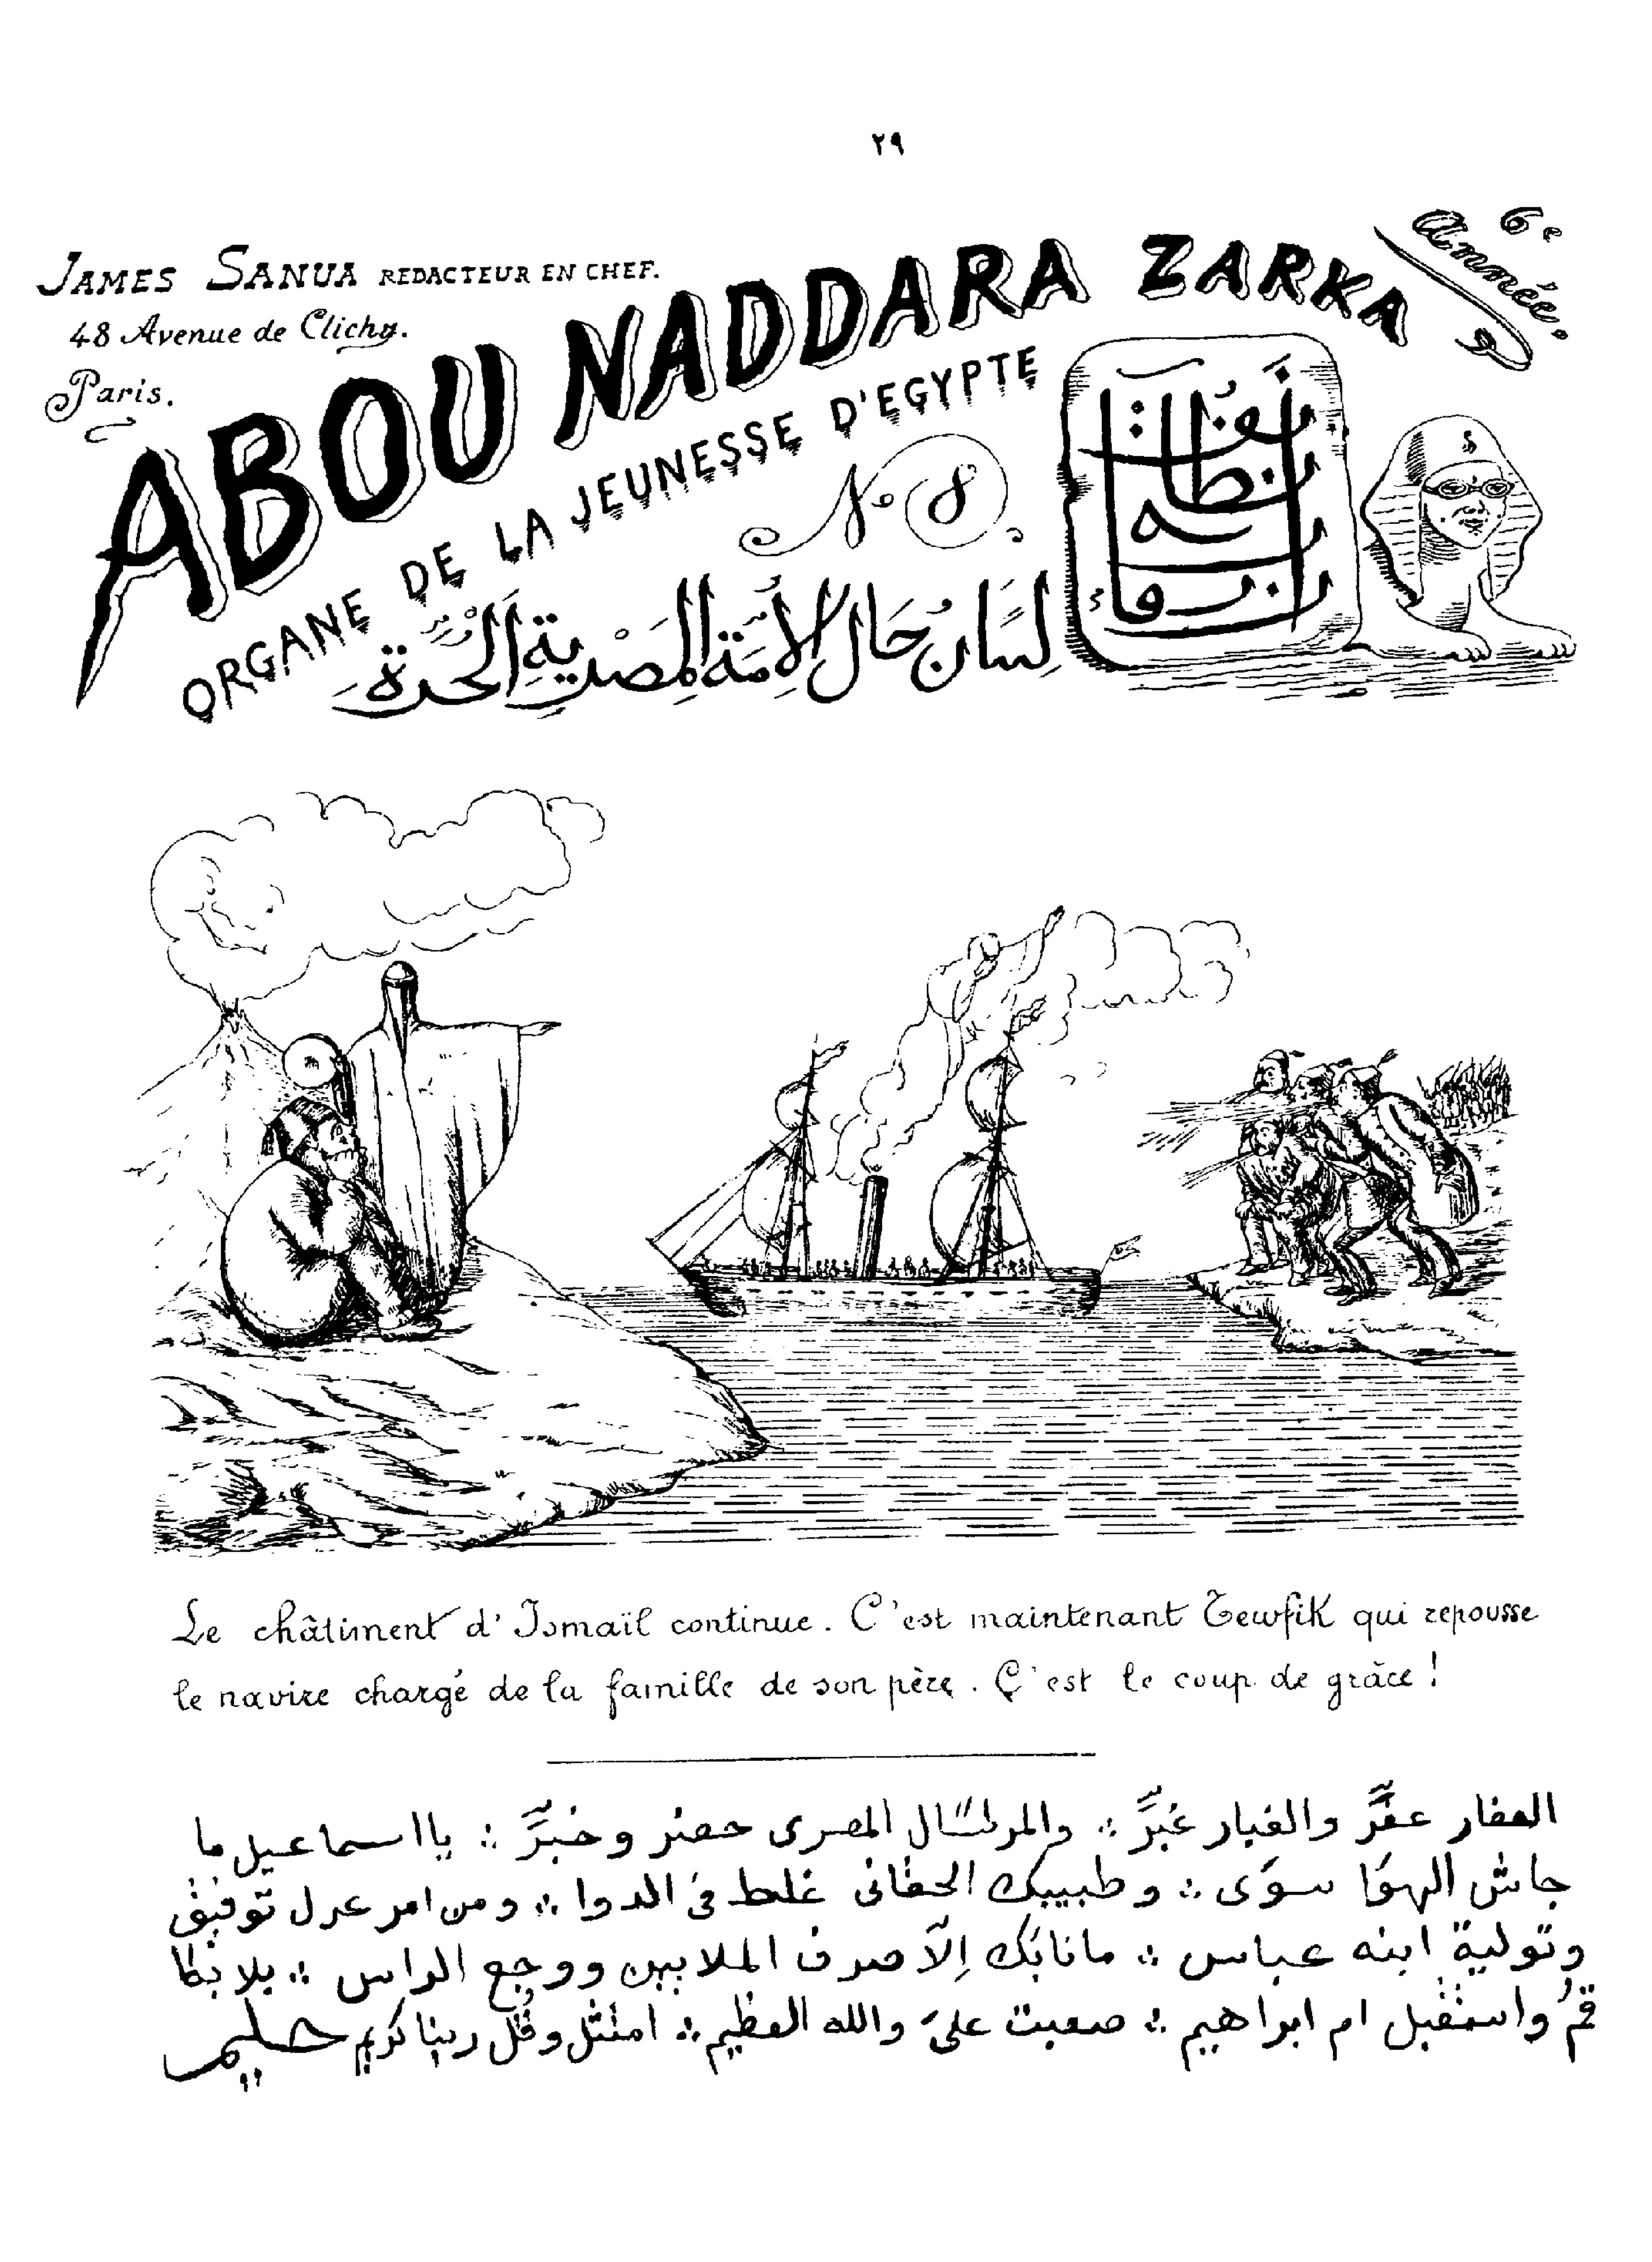 ٢٩
JAMES SANUA REDACTEUR EN CHEF.
48 Avenue de Clichy.
Paris.
6e Année.
ABOU NADDARA ZARKA
ORGANE DE LA JEUNESSE D'EGYPTE
No 8.
لِسَان حَال الأمّة المصرية الحرة
Le châtiment d'Ismaïl continue. C'est maintenant Tewfik qui repousse
le navire chargé de la famille de son père. C'est le coup de grâce!
العفار عفَّر والغبار غبَّر ∴ والمرسّال المصرى حضر وخبَّر ∴ يا اسماعيل ما
جاش الهوَا سوَى ∴ وطبيبك الحقانى غلط فى الدوا ∴ ومن امر عزل توفيق
وتولية ابنه عباس ∴ مانابَك إلّا صرف الملايين ووجع الراس ∴ بلا بطا
قمْ واستقبل ام ابراهيم ∴ صعبت علىَّ والله العظيم ∴ امتثل وقُل ربنا كريم حليم